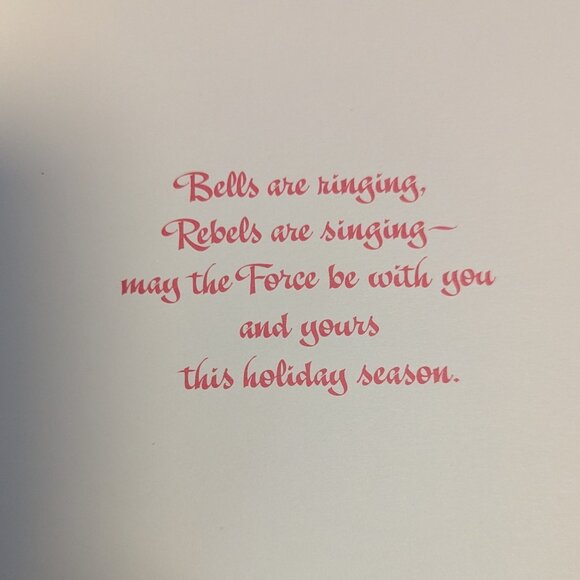 Bells are ringing,
Rebels are singing—
may the Force be with you
and yours
this holiday season.